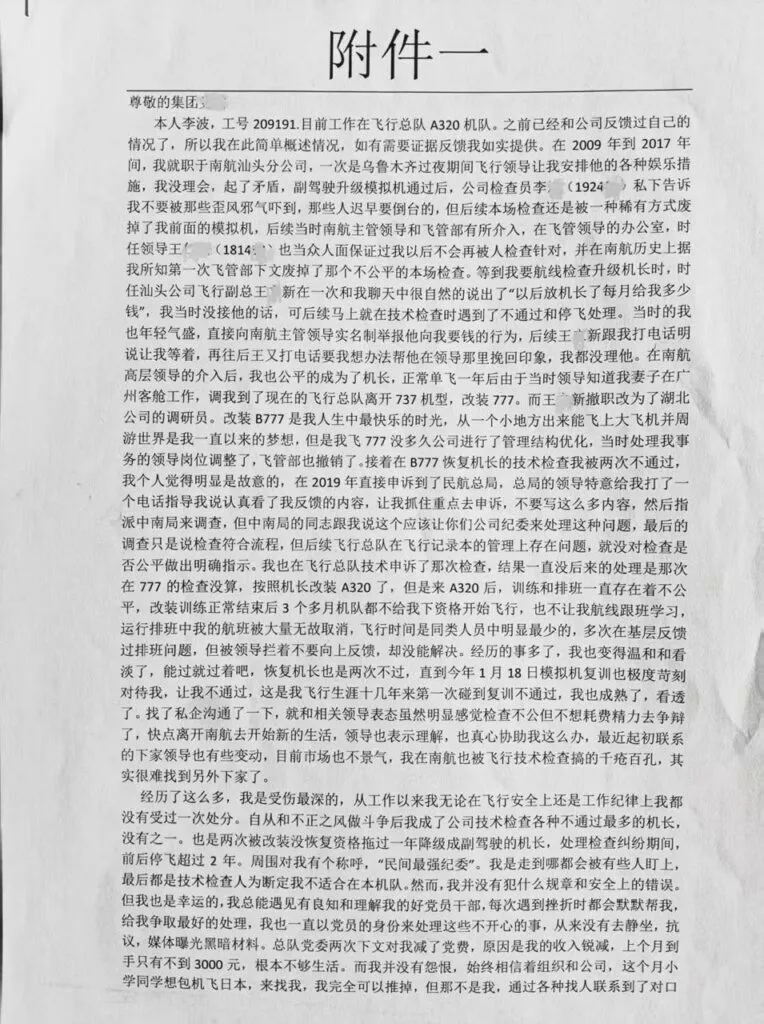 附件一
尊敬的集团
本人李波，工号 209191.目前工作在飞行总队 A320 机队。之前已经和公司反馈过自己的
情况了，所以我在此简单概述情况，如有需要证据反馈我如实提供。在 2009 年到 2017 年
间，我就职于南航汕头分公司，一次是乌鲁木齐过夜期间飞行领导让我安排他的各种娱乐措
施，我没理会，起了矛盾，副驾驶升级模拟机通过后，公司检查员李（1924）私下告诉
我不要被那些歪风邪气吓到，那些人迟早要倒台的，但后续本场检查还是被一种稀有方式废
掉了我前面的模拟机，后续当时南航主管领导和飞管部有所介入，在飞管领导的办公室，时
任领导王（1814）也当众人面保证过我以后不会再被人检查针对，并在南航历史上据
我所知第一次飞管部下文废掉了那个不公平的本场检查。等到我要航线检查升级机长时，时
任汕头公司飞行副总王新在一次和我聊天中很自然的说出了“以后放机长了每月给我多少
钱”，我当时没接他的话，可后续马上就在技术检查时遇到了不通过和停飞处理。当时的我
也年轻气盛，直接向南航主管领导实名制举报他向我要钱的行为，后续王新跟我打电话明
说让我等着，再往后王又打电话要我想办法帮他在领导那里挽回印象，我都没理他。在南航
高层领导的介入后，我也公平的成为了机长，正常单飞一年后由于当时领导知道我妻子在广
州客舱工作，调我到了现在的飞行总队离开 737 机型，改装 777。而王新撤职改为了湖北
公司的调研员。改装 B777 是我人生中最快乐的时光，从一个小地方出来能飞上大飞机并周
游世界是我一直以来的梦想，但是我飞 777 没多久公司进行了管理结构优化，当时处理我事
务的领导岗位调整了，飞管部也撤销了。接着在 B777 恢复机长的技术检查我被两次不通过，
我个人觉得明显是故意的，在 2019 年直接申诉到了民航总局，总局的领导特意给我打了一
个电话指导我说认真看了我反馈的内容，让我抓住重点去申诉，不要写这么多内容，然后指
派中南局来调查，但中南局的同志跟我说这个应该让你们公司纪委来处理这种问题，最后的
调查只是说检查符合流程，但后续飞行总队在飞行记录本的管理上存在问题，就没对检查是
否公平做出明确指示。我也在飞行总队技术申诉了那次检查，结果一直没后来的处理是那次
在 777 的检查没算，按照机长改装 A320 了，但是来 A320 后，训练和排班一直存在着不公
平，改装训练正常结束后 3 个多月机队都不给我下资格开始飞行，也不让我航线跟班学习，
运行排班中我的航班被大量无故取消，飞行时间是同类人员中明显最少的，多次在基层反馈
过排班问题，但被领导拦着不要向上反馈，却没能解决。经历的事多了，我也变得温和和看
淡了，能过就过着吧，恢复机长也是两次不过，直到今年 1 月 18 日模拟机复训也极度苛刻
对待我，让我不通过，这是我飞行生涯十几年来第一次碰到复训不通过，我也成熟了，看透
了。找了私企沟通了一下，就和相关领导表态虽然明显感觉检查不公但不想耗费精力去争辩
了，快点离开南航去开始新的生活，领导也表示理解，也真心协助我这么办，最近起初联系
的下家领导也有些变动，目前市场也不景气，我在南航也被飞行技术检查搞的千疮百孔，其
实很难找到另外下家了。
经历了这么多，我是受伤最深的，从工作以来我无论在飞行安全上还是工作纪律上我都
没有受过一次处分。自从和不正之风做斗争后我成了公司技术检查各种不通过最多的机长，
没有之一。也是两次被改装没恢复资格拖过一年降级成副驾驶的机长，处理检查纠纷期间，
前后停飞超过 2 年。周围对我有个称呼，“民间最强纪委”。我是走到哪都会被有些人盯上，
最后都是技术检查人为断定我不适合在本机队。然而，我并没有犯什么规章和安全上的错误。
但我也是幸运的，我总能遇见有良知和理解我的好党员干部，每次遇到挫折时都会默默帮我，
给我争取最好的处理，我也一直以党员的身份来处理这些不开心的事，从来没有去静坐，抗
议，媒体曝光黑暗材料。总队党委两次下文对我减了党费，原因是我的收入锐减，上个月到
手只有不到 3000 元，根本不够生活。而我并没有怨恨，始终相信着组织和公司，这个月小
学同学想包机飞日本，来找我，我完全可以推掉，但那不是我，通过各种找人联系到了对口